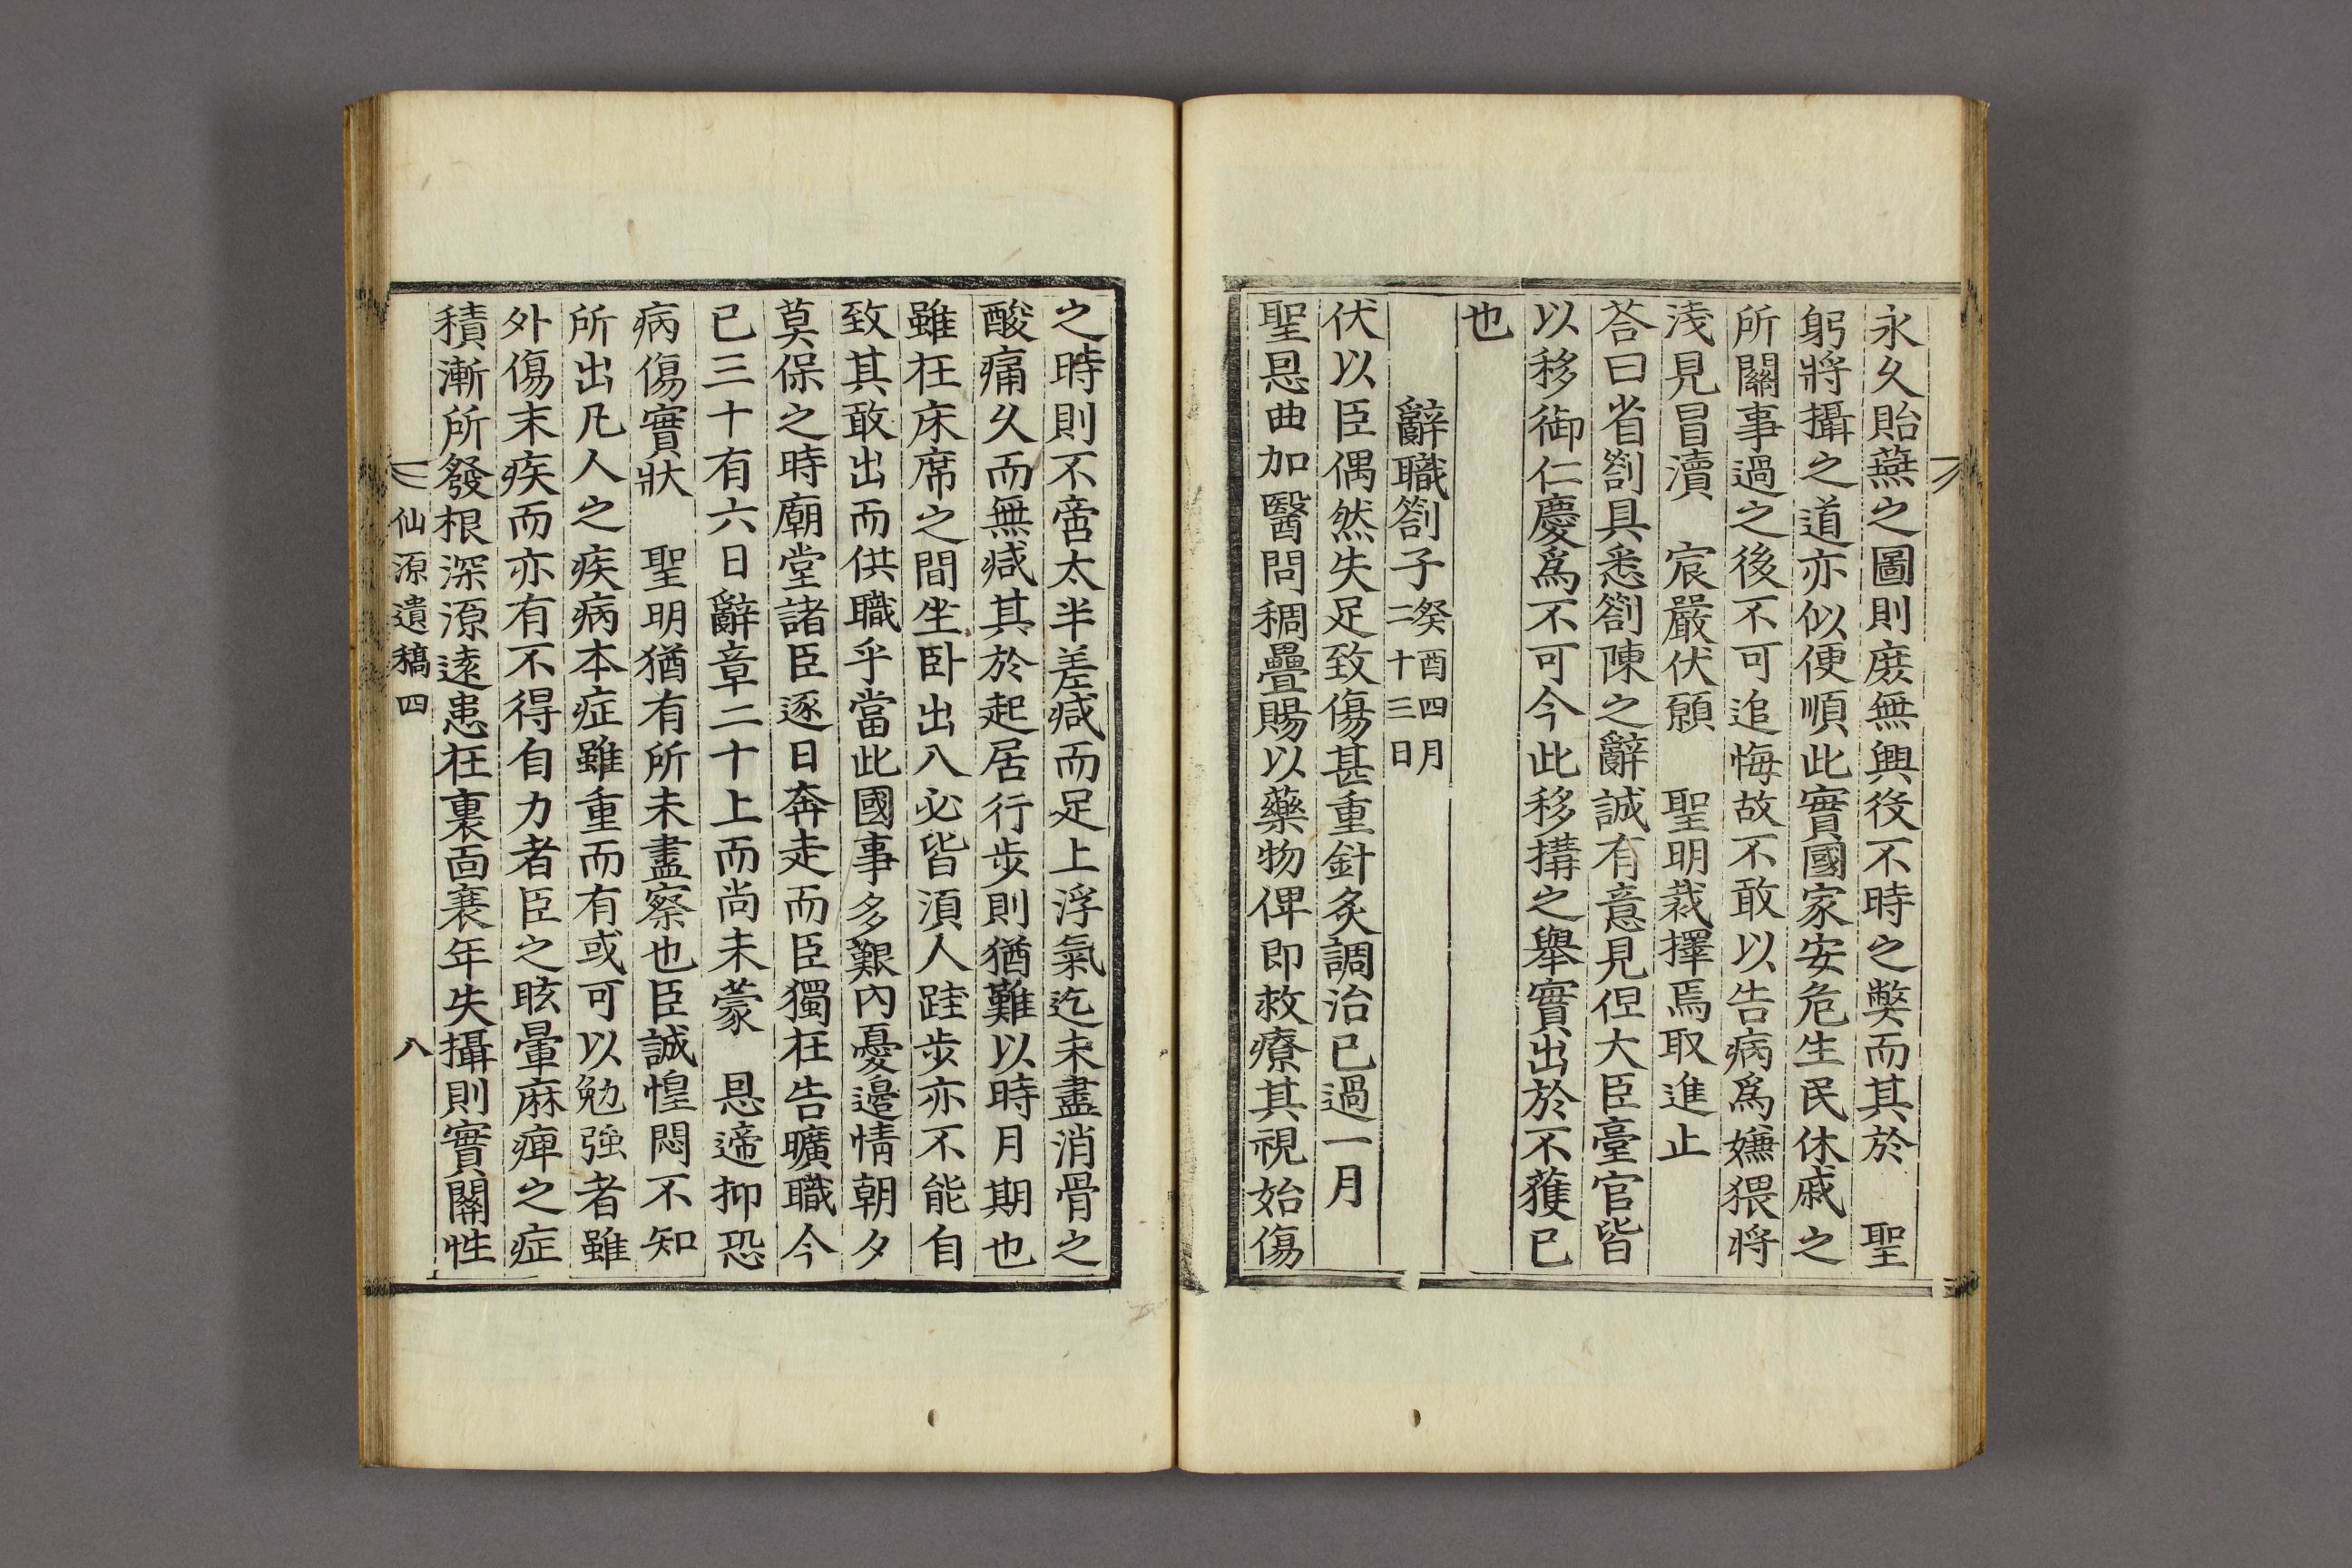 永久貽燕之圖則庶無興役不時之弊而其於　聖
躬將攝之道亦似便順此實國家安危生民休戚之
所關事過之後不可追悔故不敢以告病爲嫌猥將
淺見冒瀆　宸嚴伏願　聖明裁擇焉取進止
荅曰省劄具悉劄陳之辭誠有意見但大臣臺官皆
以移御仁慶爲不可今此移搆之舉實出於不獲已
也
辭職劄子癸酉四月二十三日
伏以臣偶然失足致傷甚重針灸調治已過一月
聖恩曲加醫問稠疊賜以藥物俾即救療其視始傷
之時則不啻太半差减而足上浮氣迄未盡消骨之
酸痛久而無减其於起居行步則猶難以時月期也
雖在床席之間坐卧出入必皆須人跬步亦不能自
致其敢出而供職乎當此國事多艱內憂邊情朝夕
莫保之時廟堂諸臣逐日奔走而臣獨在告曠職今
已三十有六日辭章二十上而尚未蒙　恩遞抑恐
病傷實狀　聖明猶有所未盡察也臣誠惶悶不知
所出凡人之疾病本症雖重而有或可以勉强者雖
外傷末疾而亦有不得自力者臣之眩暈麻痺之症
積漸所發根深源遠患在裏面衰年失攝則實關性
仙源遺稿四　八